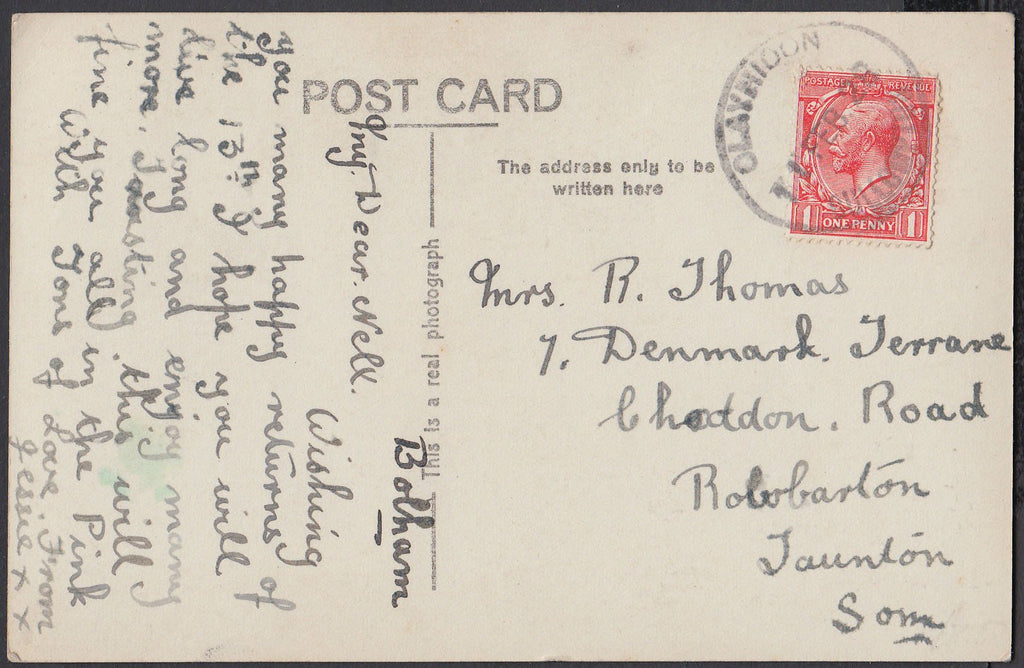 POST CARD
The address only to be
written here
This is a real photograph
CLAYHIDON
FEB
POSTAGE REVENUE
1 ONE PENNY 1
Mrs. R. Thomas
7. Denmark. Terrane
Cheddon. Road
Rowbarton
Taunton
Som
Bolham
My. Dear. Nell.
Wishing
you many happy returns of
the 13th. I hope you will
live long and enjoy many
more. Trusting. this will
fine you all in the Pink
With Tons of Love. From
Jessie x x